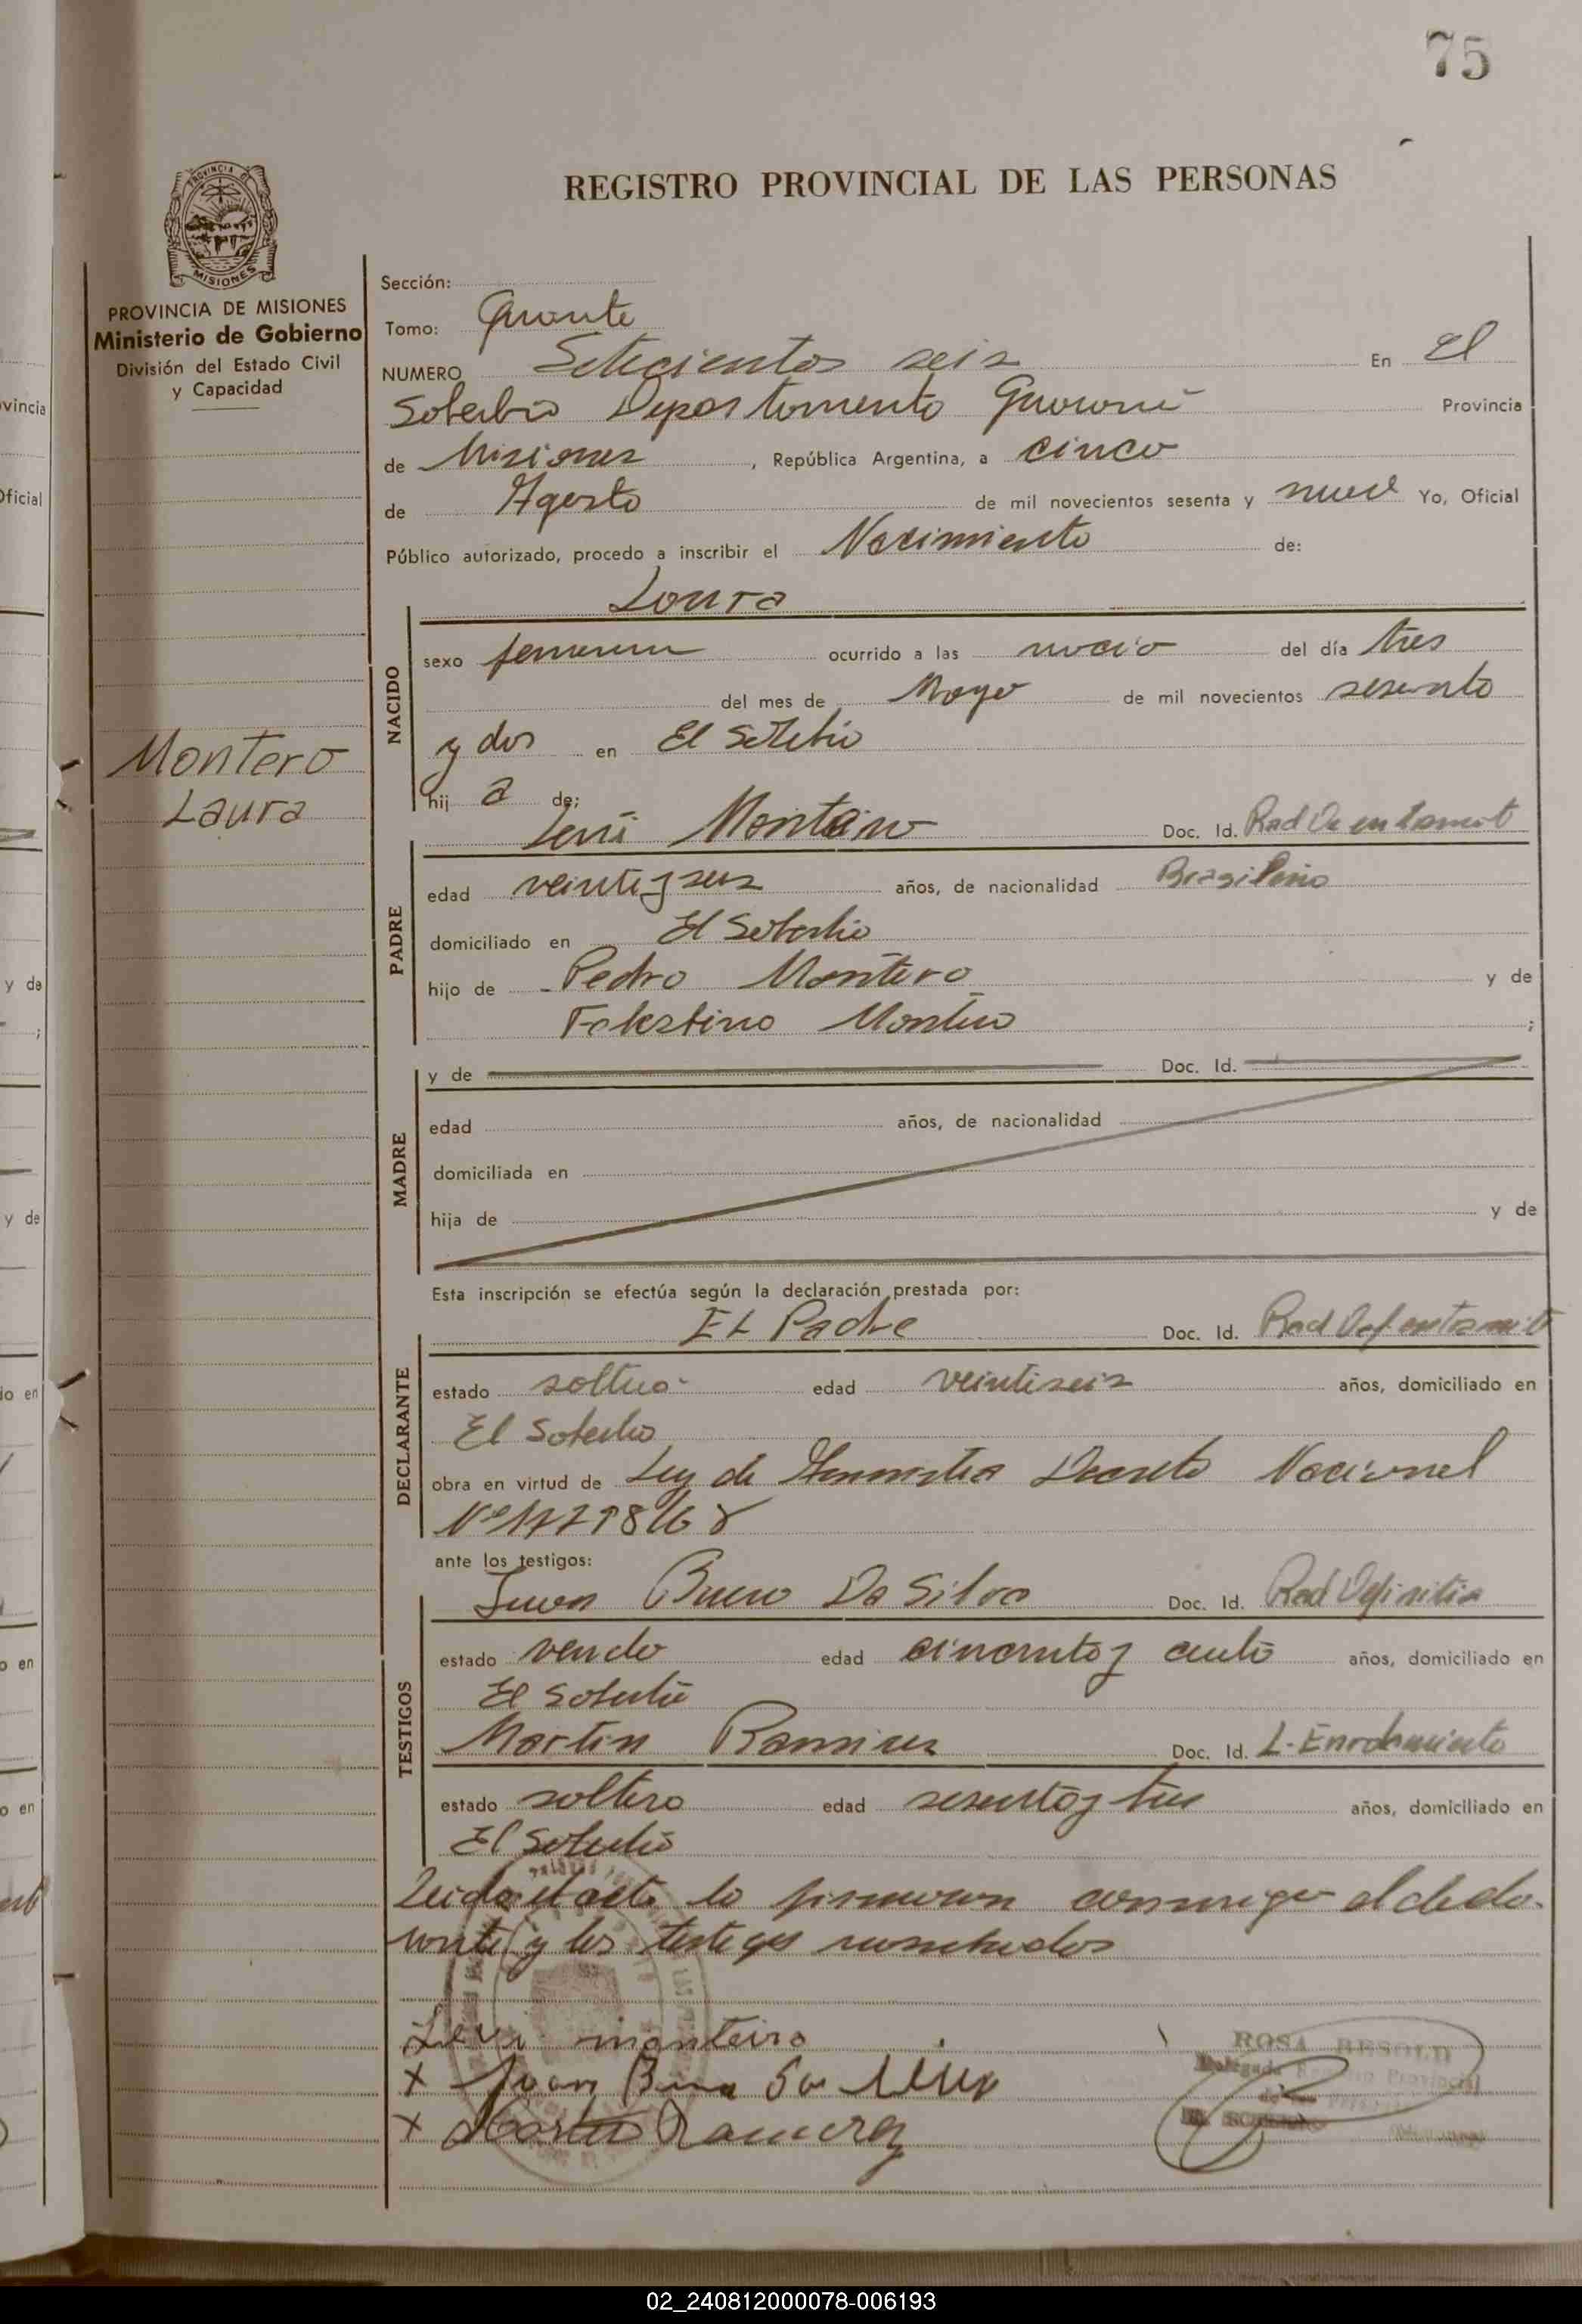 75
PROVINCIA DE
MISIONES
REGISTRO PROVINCIAL DE LAS PERSONAS
PROVINCIA DE MISIONES
Ministerio de Gobierno
División del Estado Civil
y Capacidad
Montero
Laura
Sección:
Tomo:
NUMERO Setecientos seis En El
Soberbio Departamento Guarani Provincia
de Misiones, República Argentina, a cinco
de Agosto de mil novecientos sesenta y nueve Yo, Oficial
Público autorizado, procedo a inscribir el Nacimiento de:
Laura
NACIDO
sexo femenino ocurrido a las del día tres
del mes de Mayo de mil novecientos sesenta
y dos en El Soberbio
hij a de;
Leví Doc. Id.
PADRE
edad veinte y seis años, de nacionalidad Brasileño
domiciliado en El Soberbio
hijo de Pedro Montero y de
Montero ;
MADRE
y de Doc. Id.
edad años, de nacionalidad
domiciliada en
hija de y de
Esta inscripción se efectúa según la declaración prestada por:
El Padre Doc. Id.
DECLARANTE
estado soltero edad veintiseis años, domiciliado en
El Soberbio
obra en virtud de Ley de Decreto Nacional
Nº
ante los testigos:
Juan Da Silva Doc. Id. Rad Definitiva
TESTIGOS
estado edad años, domiciliado en
El Soberbio
Martin Ramirez Doc. Id. L. Enrolamiento
estado soltero edad sesenta y tres años, domiciliado en
El Soberbio
Leida el acta la firmaron conmigo el decla-
rante y los testigos
Levi monteiro
x Juan
x Ramirez
ROSA BESOLD
02_240812000078-006193